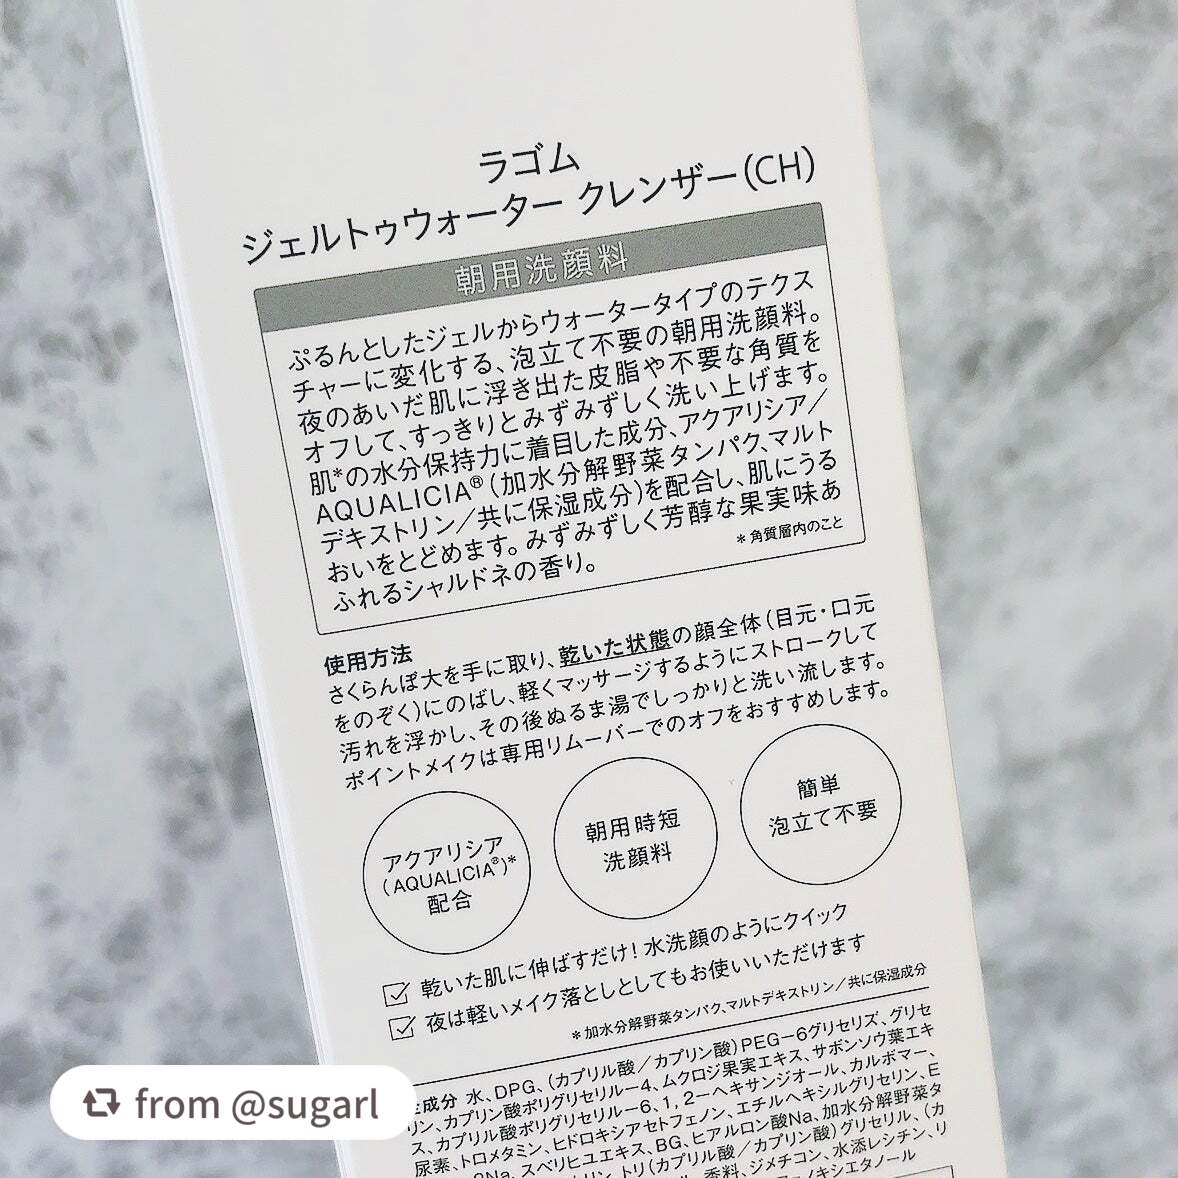 ラゴム
ジェルトゥウォーター クレンザー(CH)
朝用洗顔料
ぷるんとしたジェルからウォータータイプのテクス
チャーに変化する、泡立て不要の朝用洗顔料。
夜のあいだ肌に浮き出た皮脂や不要な角質を
オフして、すっきりとみずみずしく洗い上げます。
肌*の水分保持力に着目した成分、アクアリシア/
AQUALICIA®(加水分解野菜タンパク、マルト
デキストリン/共に保湿成分)を配合し、肌にうる
おいをとどめます。みずみずしく芳醇な果実味あ
ふれるシャルドネの香り。
*角質層内のこと
使用方法
さくらんぼ大を手に取り、乾いた状態の顔全体(目元・口元
をのぞく)にのばし、軽くマッサージするようにストロークして
汚れを浮かし、その後ぬるま湯でしっかりと洗い流します。
ポイントメイクは専用リムーバーでのオフをおすすめします。
アクアリシア
(AQUALICIA®)*
配合
朝用時短
洗顔料
簡単
泡立て不要
乾いた肌に伸ばすだけ!水洗顔のようにクイック
夜は軽いメイク落としとしてもお使いいただけます
*加水分解野菜タンパク、マルトデキストリン/共に保湿成分
成分 水、DPG、(カプリル酸/カプリン酸)PEG-6グリセリズ、グリセ
リン、カプリン酸ポリグリセリル-4、ムクロジ果実エキス、サボンソウ葉エキ
ス、カプリル酸ポリグリセリル-6、1,2-ヘキサンジオール、カルボマー、
尿素、トロメタミン、ヒドロキシアセトフェノン、エチルヘキシルグリセリン、E
Na、スベリヒユエキス、BG、ヒアルロン酸Na、加水分解野菜タ
トリ(カプリル酸/カプリン酸)グリセリル、(カ
香料、ジメチコン、水添レシチン、リ
フェノキシエタノール
from @sugarl